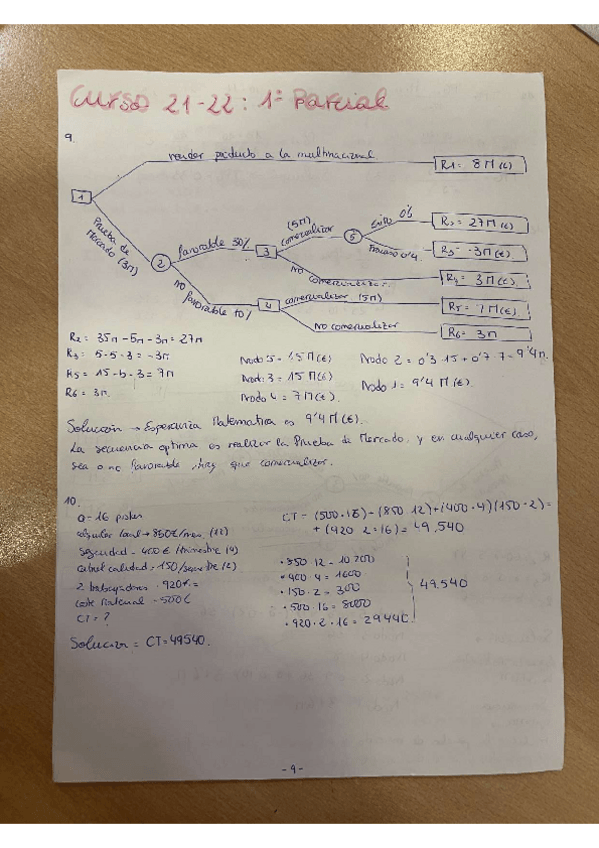 CURSO 21-22: 1º Parcial
9.
vender producto a la multinacional
R1= 8 M (€)
1
Prueba de
Mercado (3M)
2
favorable 30%
3
(5M)
comercializar
5
Éxito 0'6
R2 = 27M (€)
Fracaso 0'4
R3 = -3M (€)
no comercializar
R4 = 3M (€)
no favorable 70%
4
comercializar (5M)
R5 = 7M (€)
No comercializar
R6 = 3M
R2 = 35M - 5M - 3M = 27M
R3 = 5-5-3 = -3M
R5 = 15-5-3 = 7M
R6 = 3M.
Nodo 5 = 15 M (€)
Nodo 3 = 15 M (€)
Nodo 4 = 7M (€).
Nodo 2 = 0'3·15 + 0'7·7 = 9'4M.
Nodo 1 = 9'4 M (€).
Solución → Esperanza Matemática es 9'4 M (€).
La secuencia optima es realizar la Prueba de Mercado, y en cualquier caso,
sea o no favorable, hay que comercializar.
10.
Q = 16
alquiler local → 850€/mes. (12)
Seguridad - 400€ /trimestre (4)
calidad = 150/semestre (2)
2 trabajadores · 920€ =
coste material - 500€
CT = ?
CT = (500·16) + (850·12) + (400·4)(150·2) =
+ (920·2·16) = 49.540
· 850·12 = 10200
· 400·4 = 1600
· 150·2 = 300
· 500·16 = 8000
· 920·2·16 = 29440.
49.540
Solución = CT = 49540.
- 9 -